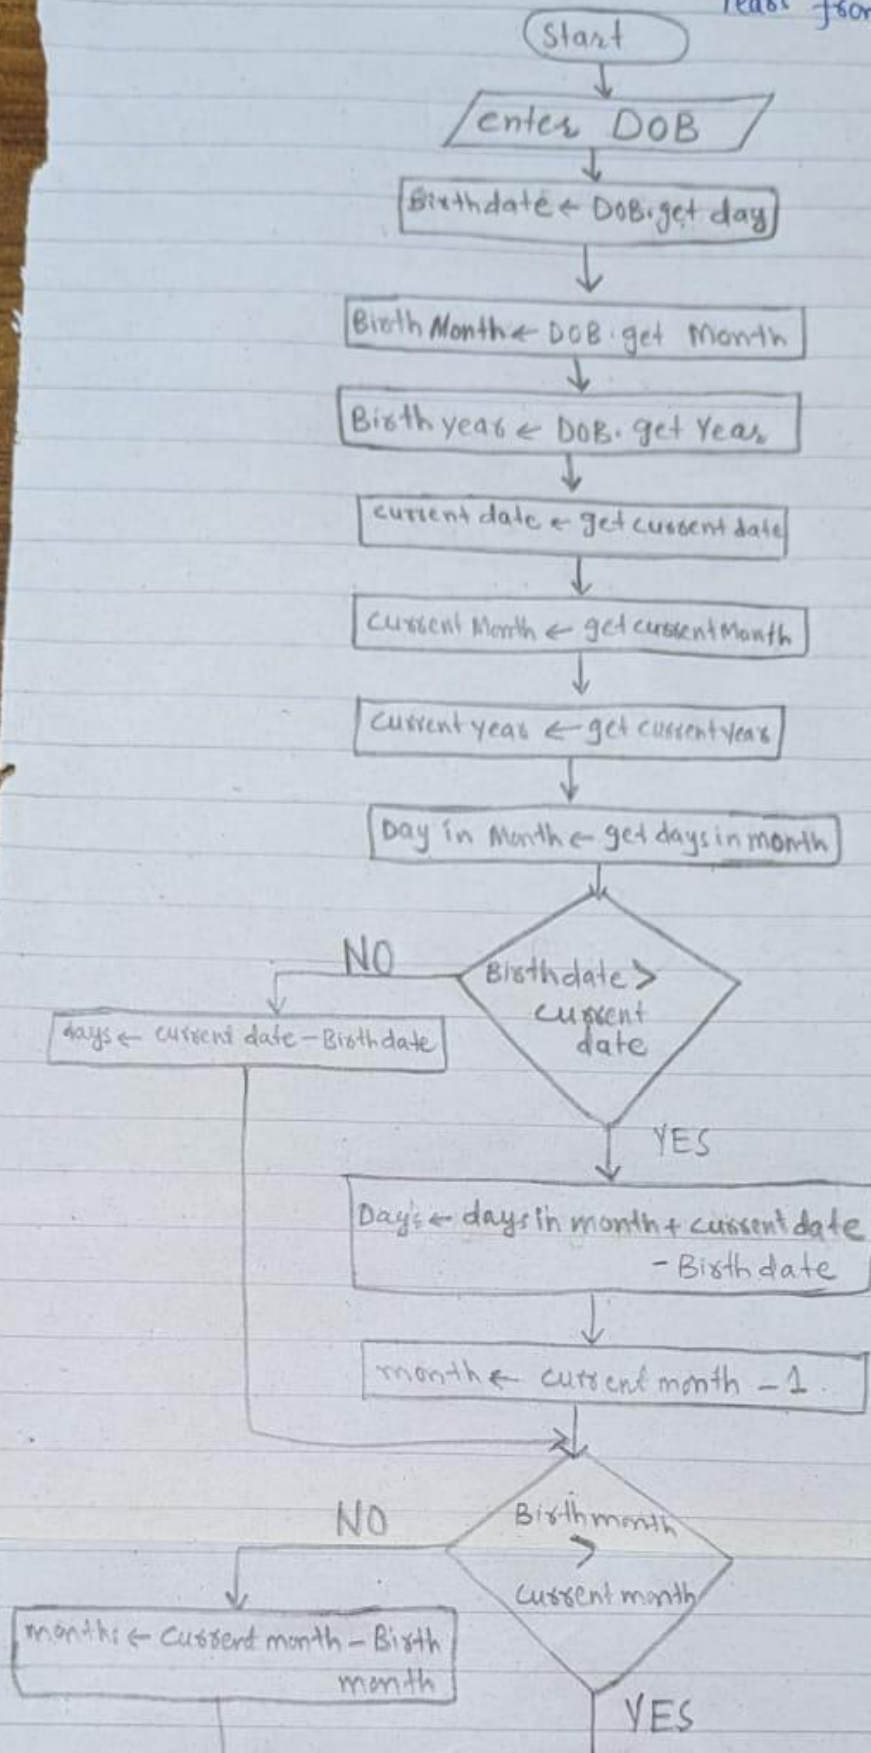 Years from
Start
enter DOB
Birthdate ← DOB.get day
Birth Month ← DOB.get Month
Birth year ← DOB.get Year
current date ← get current date
Current Month ← get current Month
Current year ← get current year
Day in Month ← get days in month
NO
Birthdate >
current
date
days ← current date - Birthdate
YES
Day's ← days in month + current date
- Birthdate
month ← current month - 1
NO
Birthmonth
>
Current month
months ← Current month - Birth
month
YES